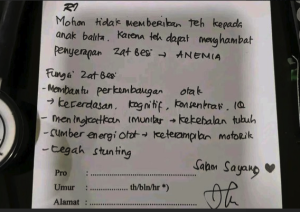 R/
Mohon tidak memberikan teh kepada
anak balita. Karena teh dapat menghambat
penyerapan zat besi → ANEMIA
Fungsi zat besi
- Membantu perkembangan otak
→ kecerdasan, kognitif, konsentrasi, IQ
- meningkatkan imunitas → kekebalan tubuh
- Sumber energi otot → keterampilan motorik
- Cegah stunting
Salam Sayang
Pro : ..............................
Umur : .............. th/bln/hr *)
Alamat : ..............................